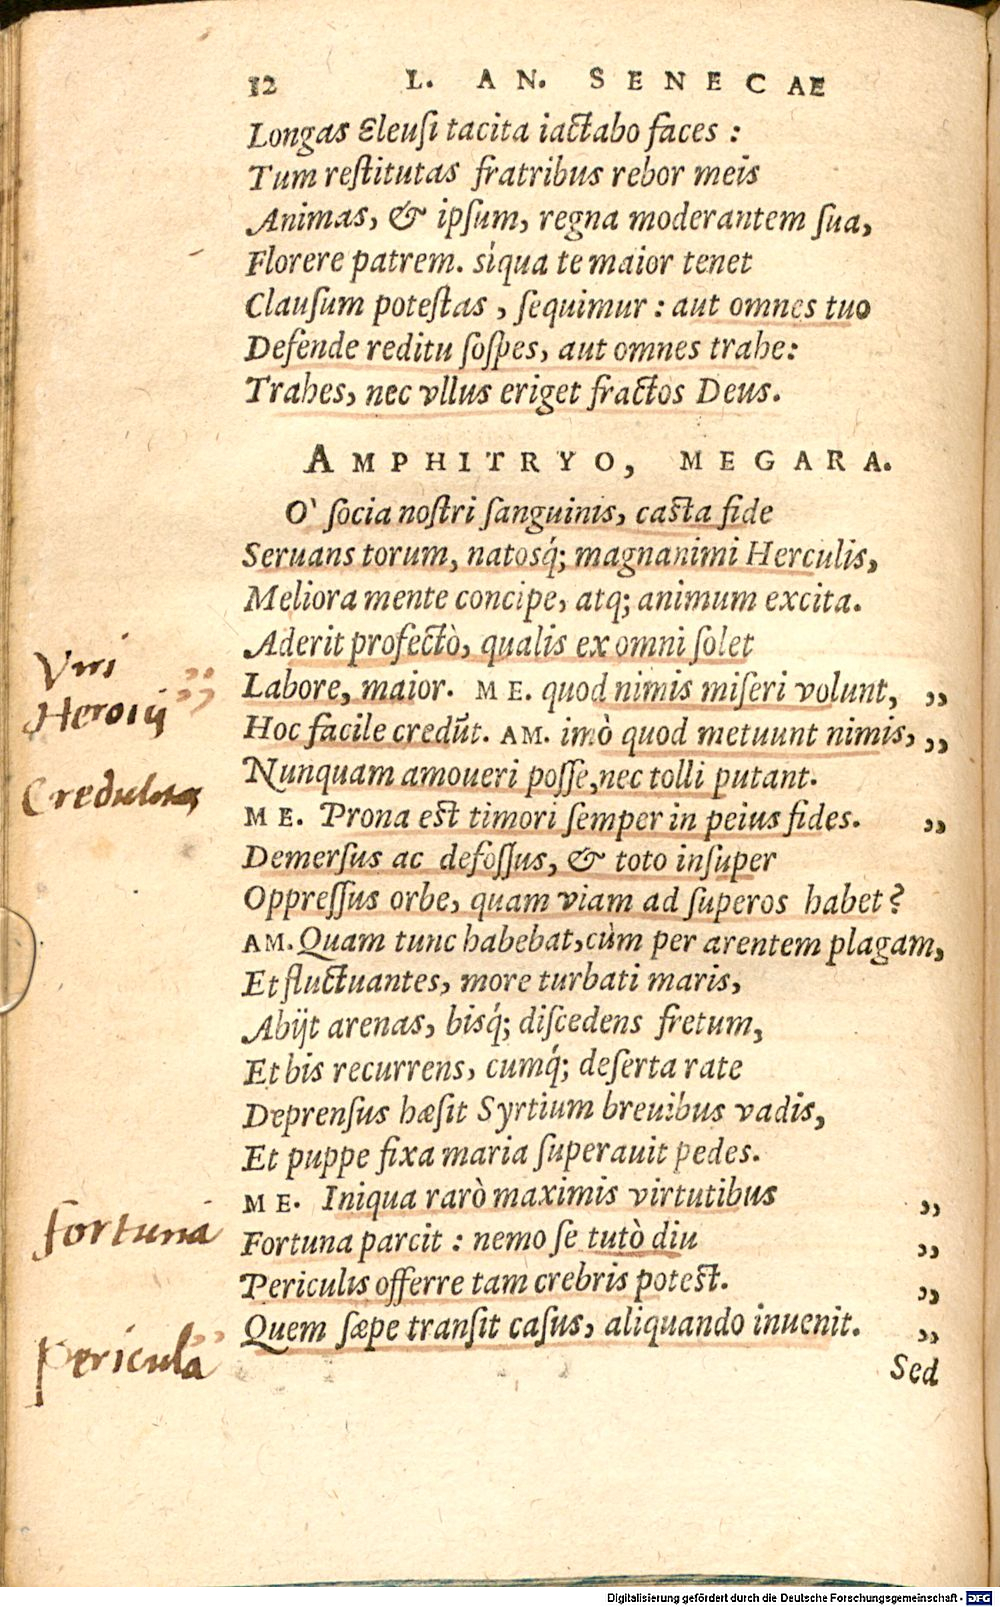 12 L. AN. SENECAE
Longas Eleusi tacita iactabo faces :
Tum restitutas fratribus rebor meis
Animas, & ipsum, regna moderantem sua,
Florere patrem. sìqua te maior tenet
Clausum potestas, sequimur : aut omnes tuo
Defende reditu sospes, aut omnes trahe:
Trahes, nec vllus eriget fractos Deus.
AMPHITRYO, MEGARA.
O` socia nostri sanguinis, casta fide
Seruans torum, natosq́; magnanimi Herculis,
Meliora mente concipe, atq; animum excita.
Aderit profectò, qualis ex omni solet
Viri
Labore, maior. ME. quod nimis miseri volunt, ,,
Heroij
Hoc facile credūt. AM. imò quod metuunt nimis, ,,
Nunquam amoueri posse, nec tolli putant.
Credulitas
ME. Prona est timori semper in peius fides. ,,
Demersus ac defossus, & toto insuper
Oppressus orbe, quam viam ad superos habet?
AM. Quam tunc habebat, cùm per arentem plagam,
Et fluctuantes, more turbati maris,
Abijt arenas, bisq́; discedens fretum,
Et bis recurrens, cumq́; deserta rate
Deprensus hæsit Syrtium breuibus vadis,
Et puppe fixa maria superauit pedes.
ME. Iniqua rarò maximis virtutibus ,,
fortuna
Fortuna parcit : nemo se tutò diu ,,
Periculis offerre tam crebris potest. ,,
Quem sæpe transit casus, aliquando inuenit. ,,
pericula
Sed
Digitalisierung gefördert durch die Deutsche Forschungsgemeinschaft - DFG